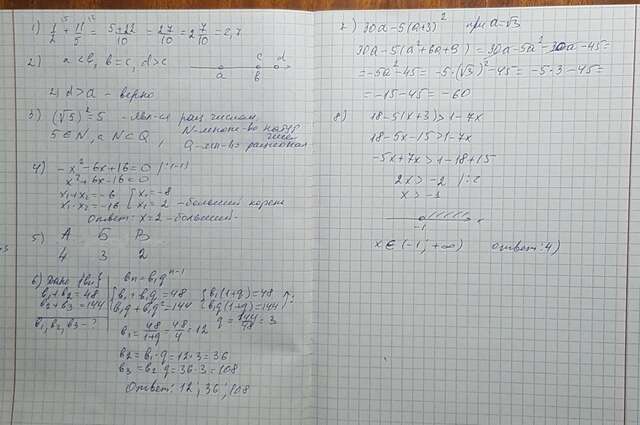 1) 1/2 + 11/5 = (5+22)/10 = 27/10 = 2 7/10 = 2,7
2) a < b, b = c, d > c
a b c d
2) d > a - верно
3) (√5)² = 5 - явл-ся рац числом,
5 ∈ N, а N ⊂ Q, N - множе-во натур чисел
Q - мн-во рационал
4) -x² - 6x + 16 = 0 | ·(-1)
x² + 6x - 16 = 0
x₁ + x₂ = -6 { x₁ = -8
x₁ · x₂ = -16 { x₂ = 2 - больший корень
Ответ: x = 2 - больший
5) А Б В
4 3 2
6) Дано {bn} bn = b₁q^(n-1)
b₁ + b₂ = 48
b₂ + b₃ = 144
b₁, b₂, b₃ - ?
{ b₁ + b₁q = 48 { b₁(1+q) = 48
{ b₁q + b₁q² = 144 { b₁q(1+q) = 144 ↑:
q = 144/48 = 3
b₁ = 48/(1+q) = 48/4 = 12
b₂ = b₁ · q = 12 · 3 = 36
b₃ = b₂ · q = 36 · 3 = 108
Ответ: 12; 36; 108
7) 30a - 5(a+3)² при a = √3
30a - 5(a² + 6a + 9) = 30a - 5a² - 30a - 45 =
= -5a² - 45 = -5 · (√3)² - 45 = -5 · 3 - 45 =
= -15 - 45 = -60
8) 18 - 5(x+3) > 1 - 7x
18 - 5x - 15 > 1 - 7x
-5x + 7x > 1 - 18 + 15
2x > -2 | :2
x > -1
-1 x
x ∈ (-1; +∞) Ответ: 4)